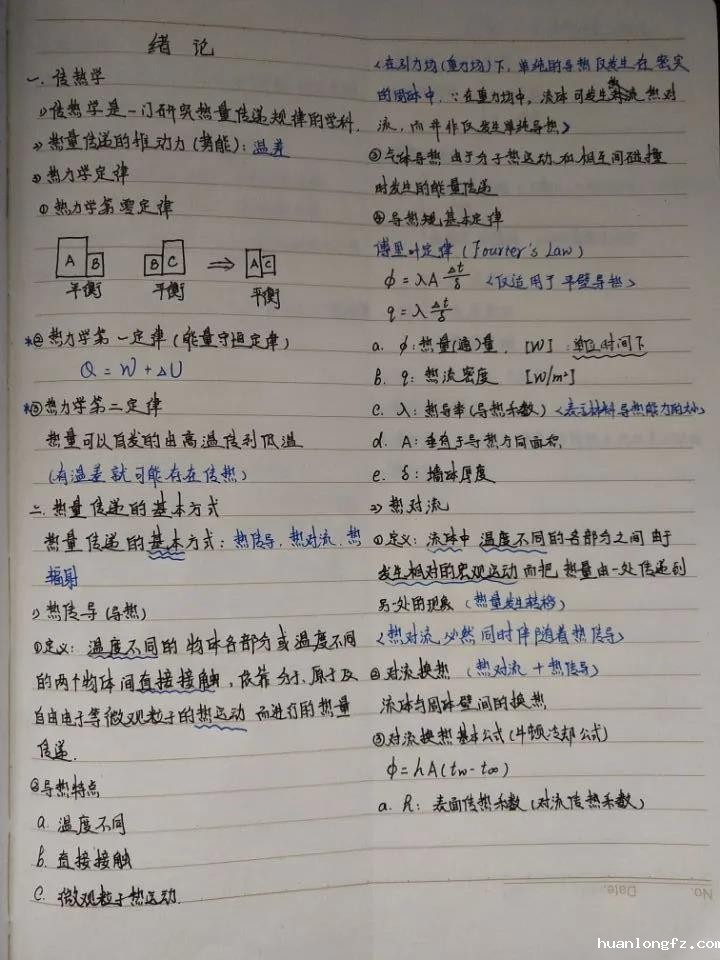 绪论
一. 传热学
1) 传热学是一门研究热量传递规律的学科.
2) 热量传递的推动力(势能): 温差
3) 热力学定律
① 热力学第零定律
A B B C ⇒ A C
平衡 平衡 平衡
*② 热力学第一定律(能量守恒定律)
Q = W + ΔU
*③ 热力学第二定律
热量可以自发的由高温传到低温
(有温差就可能存在传热)
二. 热量传递的基本方式
热量传递的基本方式: 热传导. 热对流. 热
辐射
1) 热传导(导热)
①定义: 温度不同的物体各部分或温度不同
的两个物体间直接接触, 依靠分子、原子及
自由电子等微观粒子的热运动而进行的热量
传递.
②导热特点
a. 温度不同
b. 直接接触
c. 微观粒子热运动.
<在引力场(重力场)下, 单纯的导热仅发生在密实
的固体中. ∵在重力场中, 流体可发生热对
流, 而并非仅发生单纯导热>
③气体导热 由分子热运动和相互间碰撞
时发生的能量传递
④导热基本定律
傅里叶定律 (Fourier's Law)
ϕ = λA Δt/δ <仅适用于平壁导热>
q = λ Δt/δ
a. ϕ: 热量(通)量. [W] : 单位时间下
b. q: 热流密度 [W/m²]
c. λ: 热导率(导热系数) <表示材料导热能力的大小>
d. A: 垂直于导热方向面积
e. δ: 墙体厚度
2) 热对流
①定义: 流体中温度不同的各部分之间由于
发生相对的宏观运动而把热量由一处传递到
另一处的现象 (热量发生转移)
<热对流必然同时伴随着热传导>
②对流换热 (热对流 + 热传导)
流体与固体壁间的换热
③对流换热基本公式(牛顿冷却公式)
ϕ = hA(tw - t∞)
a. h: 表面传热系数(对流传热系数)
No. Date.
huanlongfz.com